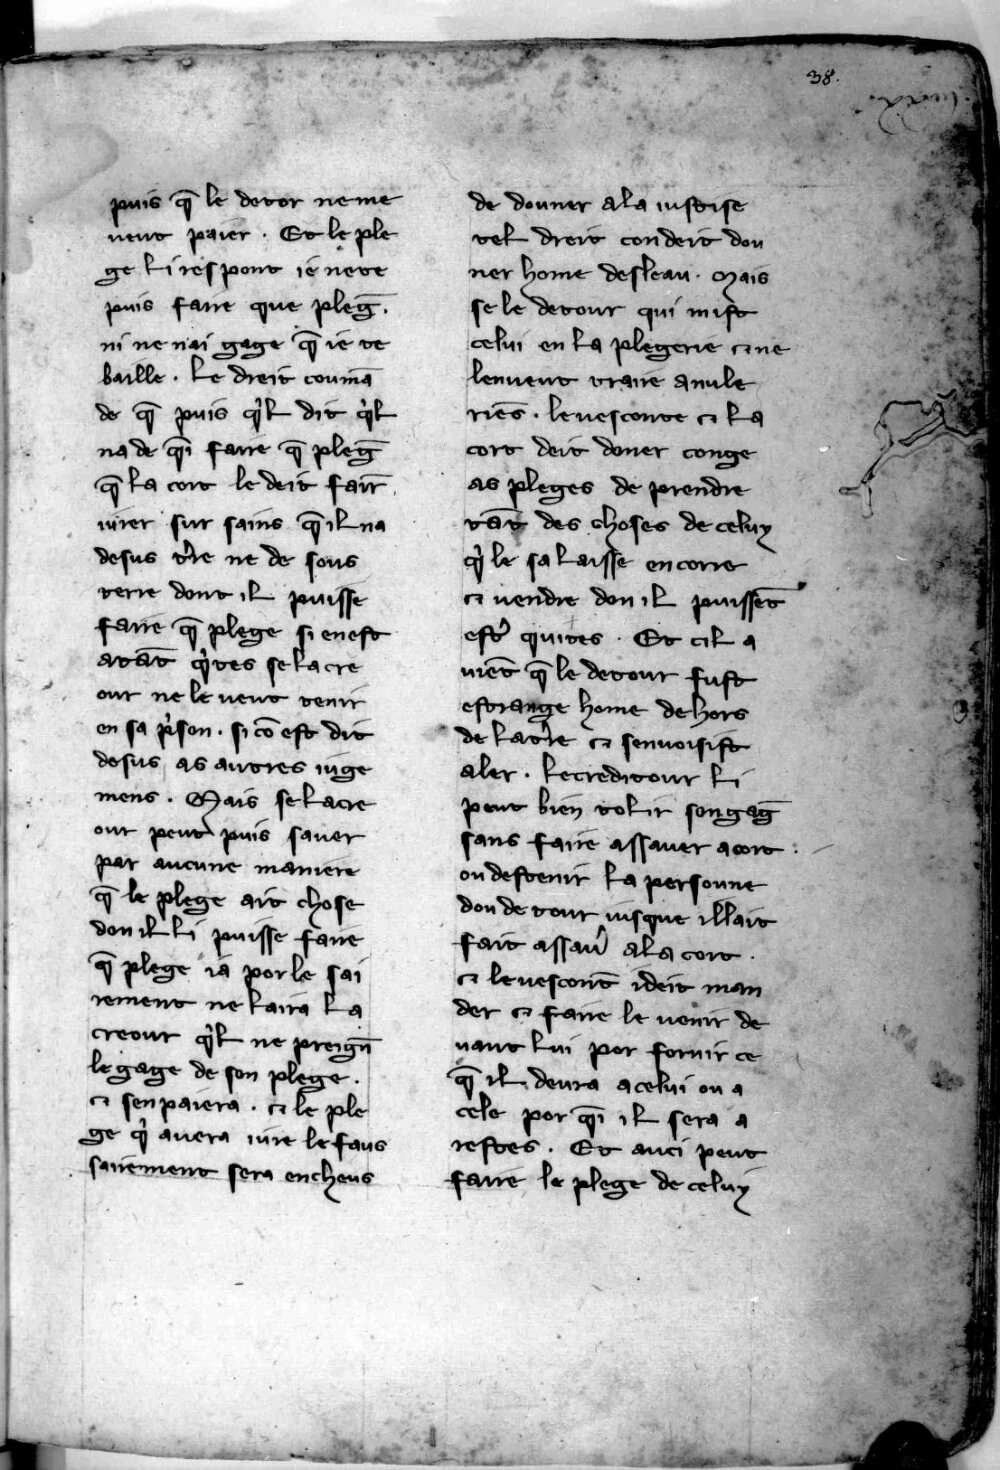 38.
puis q̄ le detor ne me
veut paier . Et le ple
ge li respont ie ne te
puis faire que pleḡ .
ni ne nai gage q̄ ie te
baille . le dreit comā
de q̄ puis q̓l dit q̓l
na de q̄i faire q̄ pleḡ
q̄ la cort le deit fair̄
iurer sur sains q̄ il na
desus t̓re ne de sous
terre dont il puisse
faire q̄ plege si en est
atāt q̓tes se la cre
our ne le veut tenir
en sa p̓son . si cō est dit
desus as autres iuge
mens . Mais se la cre
our peut puis saver
par aucune maniere
q̄ le plege ait chose
don il li puisse faire
q̄ plege ia por le sai
rement ne laira la
creour q̓l ne preign̄
le gage de son plege .
⁊ sen paiera . ⁊ le ple
ge q̓ avera iure le faus
sairement sera encheus
de donner a la iustise
tel dreit con deit don
ner home desleau . Mais
se le detour qui mist
celui en la plegerie ⁊ ne
len veut traire a nule
riēs . le vesconte ⁊ la
cort deit doner conge
as pleges de prendre
tāt des choses de celuy
q̓ le sa laisse encorre
⁊ vendre don il puissēt
est̓ quites . Et cil a
viēt q̄ le detour fust
estrange home de hors
de la t̓re ⁊ sen voisist
aler . le creditour li
peut bien tolir son gaḡ
sans faire assaver a cort .
ou destenir la persoune
dou detour iusque il lait
fait assav̓ a la cort .
⁊ le vescont̄ i deit man
der ⁊ faire le venir de
vant lui por fornir ce
q̄ il devra a celui ou a
cele por q̄i il sera a
restes . Et auci peut
faire le plege de celuy